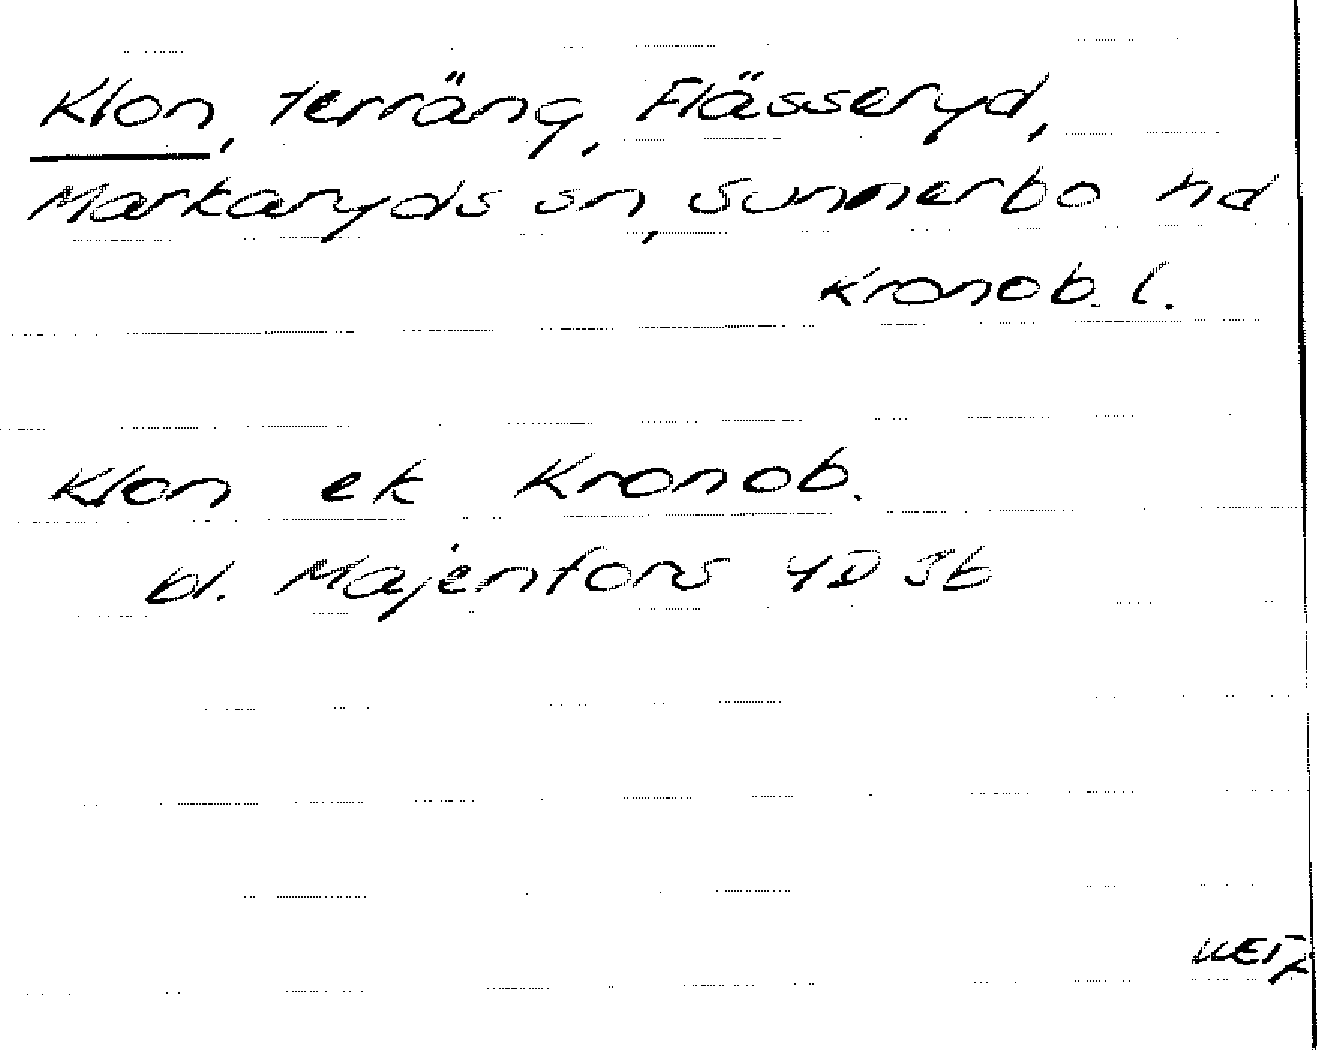 Klon, terräng, Flässeryd,
Markaryds sn, Sunnerbo hd
Kronob. l.
Klon ek Kronob.
bl. Majenfors 4D 3b